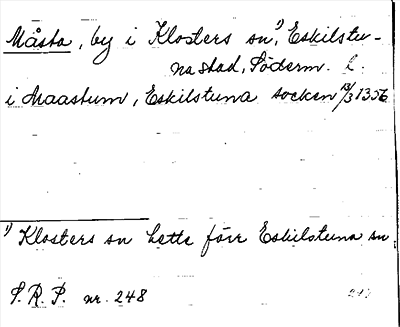 Måsta, by i Klosters sn¹⁾, Eskilstu-
na stad, Söderm. l.
i Maastum, Eskilstuna socken 13/3 1356
¹⁾ Klosters sn hette förr Eskilstuna sn.
S. R. P. nr. 248